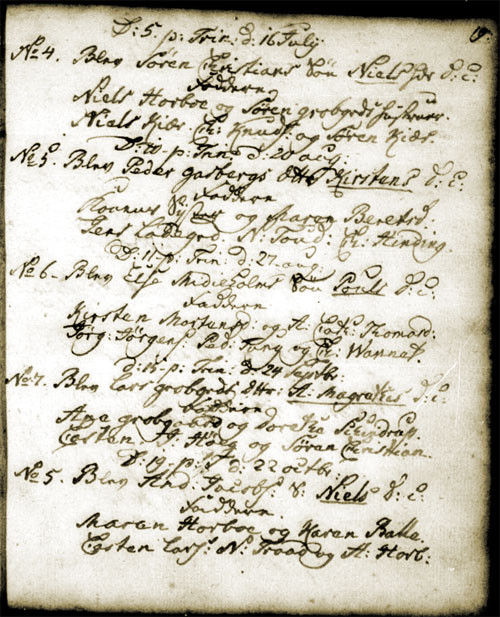 19.
D: 5. p: Trin: d: 16 July.
No 4. Blev Søren Christians Søn Niels d: c:
Faddern
Niels Horboe og Søren grobgrds hustrue.
Niels Kiær Ch: Knuds: og Søren Kiær.
D: 10. p: Trin: d: 20 aug:
No 5. Blev Peder garbergs dttr Kirstens d: c:
Faddern
og Maren Beretsd.
Jens N: Toud: Ch: Hinding.
D: 11. p: Trin: d: 27. aug:
No 6. Blev Else Midieholms Søn Poull d: c:
Faddern
Kirsten Mortensd: og A: Cath: Thomasd:
Jørg: Jørgens: Ped: og Ch: Wannet.
D: 15. p: Trin: d: 24 Septbr:
No 7. Blev Lars grobgrds dttr: A: Magretes d: c:
Faddern
Ane grobgaard og Dorethe
Carsten og Søren Christian.
D: 19. p: d: 22 octbr:
No 5. Blev And: Jacobs: S: Niels d: c:
Faddern
Maren Horboe og Karen Balle.
Carsten Lars: N: Traad og A: Horb: